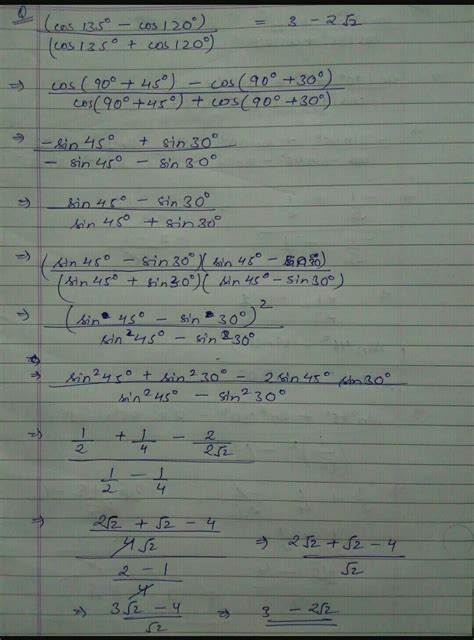 Q (cos 135° - cos 120°) / (cos 135° + cos 120°) = 3 - 2√2
⇒ cos(90° + 45°) - cos(90° + 30°) / cos(90° + 45°) + cos(90° + 30°)
⇒ -sin 45° + sin 30° / -sin 45° - sin 30°
⇒ sin 45° - sin 30° / sin 45° + sin 30°
⇒ (sin 45° - sin 30°)(sin 45° - sin 30°) / (sin 45° + sin 30°)(sin 45° - sin 30°)
⇒ (sin 45° - sin 30°)² / sin²45° - sin²30°
⇒ sin²45° + sin²30° - 2 sin 45° sin 30° / sin²45° - sin²30°
⇒ 1/2 + 1/4 - 2/2√2 / 1/2 - 1/4
⇒ 2√2 + √2 - 4 / 4√2 / 2 - 1 / 4 ⇒ 2√2 + √2 - 4 / √2
⇒ 3√2 - 4 / √2 ⇒ 3 - 2√2